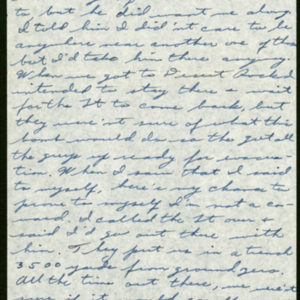 to but he did want me along
I told him I did'nt care to be
anywhere near another one of those
but I'd take him there anyway.
When we got to Desert Rock I
intended to stay there & wait
for the Lt to come back, but
they were'nt sure of what this
bomb would do so they got all
the guys up ready for evacua-
tion. When I saw that I said
to myself, here's my chance to
prove to myself I'm not a co-
ward. I called the Lt over &
said I'd go out there with
him. They put us in a trench
3500 yards from ground zero.
All the time out there, we were'nt
sure if it